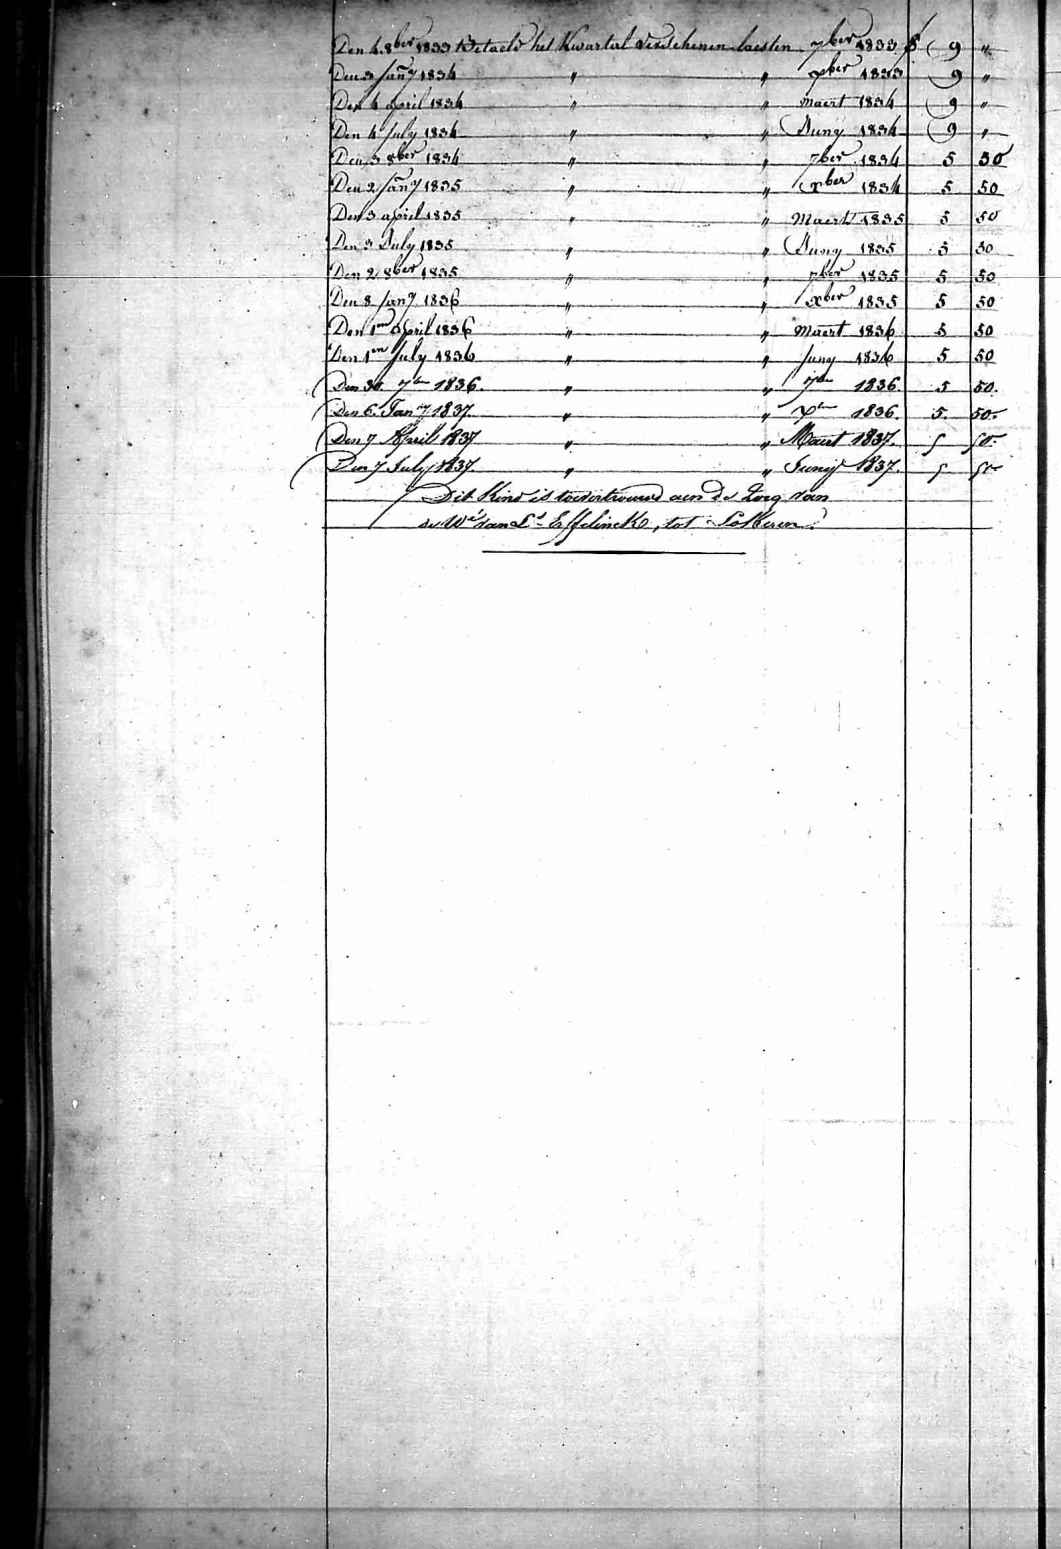 Den 4 8ber 1833 Betaeld het Kwartal verschenen laesten 7ber 1833 f 9 "
Den 3 Jany 1834 " " xber 1833 9 "
Den 4 april 1834 " " maert 1834 9 "
Den 4 July 1834 " " Juny 1834 9 "
Den 3 8ber 1834 " " 7ber 1834 5 50
Den 2 Jany 1835 " " xber 1834 5 50
Den 3 april 1835 " " Maert 1835 5 50
Den 3 July 1835 " " Juny 1835 5 50
Den 2 8ber 1835 " " 7ber 1835 5 50
Den 8 Jany 1836 " " xber 1835 5 50
Den 1en April 1836 " " Maert 1836 5 50
Den 1en July 1836 " " Juny 1836 5 50
Den 30 7ber 1836. " " 7ber 1836. 5 50.
Den 6 Jany 1837. " " Xber 1836. 5. 50.
Den 7 April 1837 " " Maert 1837. 5 50
Den 7 July 1837. " " Junij 1837. 5 50
Dit Kind is toevertrouwd aen de Zorg van
de We van Ld Effelinck, tot Lokeren.